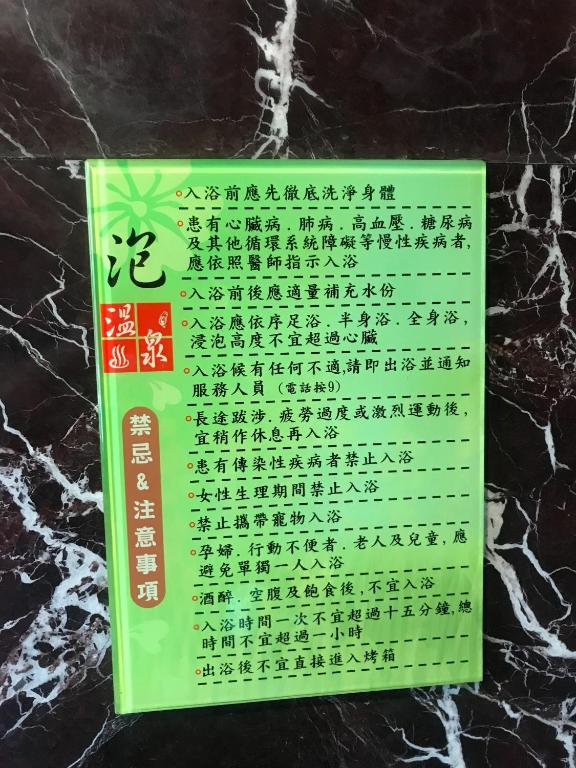 泡
溫泉
禁忌&注意事項
入浴前應先徹底洗淨身體
患有心臟病.肺病.高血壓.糖尿病
及其他循環系統障礙等慢性疾病者,
應依照醫師指示入浴
入浴前後應適量補充水份
入浴應依序足浴.半身浴.全身浴,
浸泡高度不宜超過心臟
入浴候有任何不適,請即出浴並通知
服務人員(電話按9)
長途跋涉.疲勞過度或激烈運動後,
宜稍作休息再入浴
患有傳染性疾病者禁止入浴
女性生理期間禁止入浴
禁止攜帶寵物入浴
孕婦.行動不便者.老人及兒童,應
避免單獨一人入浴
酒醉.空腹及飽食後,不宜入浴
入浴時間一次不宜超過十五分鐘,總
時間不宜超過一小時
出浴後不宜直接進入烤箱